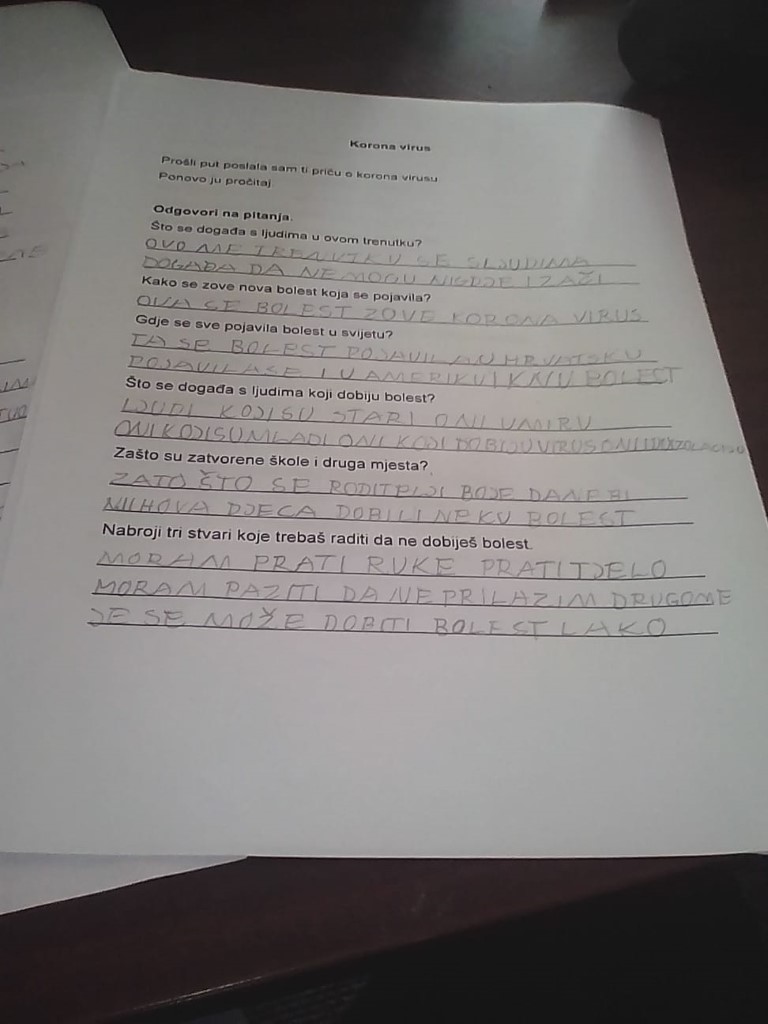 Korona virus
Prošli put poslala sam ti priču o korona virusu
Ponovo ju pročitaj.
Odgovori na pitanja.
Što se događa s ljudima u ovom trenutku?
OVO ME TRENUTKU SE SLJUDIMA
DOGAĐA DA NE MOGU NIGDJE IZAĆI
Kako se zove nova bolest koja se pojavila?
OVA SE BOLEST ZOVE KORONA VIRUS
Gdje se sve pojavila bolest u svijetu?
TA SE BOLEST POJAVILA U HRVATSKU
POJAVILA SE I U AMERIKU I BOLEST
Što se događa s ljudima koji dobiju bolest?
LJUDI KOJI SU STARI ONI UMIRU
ONI KOJI SU MLADI ONI KOJI DOBIJU VIRUS ONI
Zašto su zatvorene škole i druga mjesta?
ZATO ŠTO SE RODITELJI BOJE DA NE BI
NJIHOVA DJECA DOBILI NEKU BOLEST
Nabroji tri stvari koje trebaš raditi da ne dobiješ bolest.
MORAM PRATI RUKE PRATI TJELO
MORAM PAZITI DA NE PRILAZIM DRUGOME
JE SE MOŽE DOBITI BOLEST LAKO